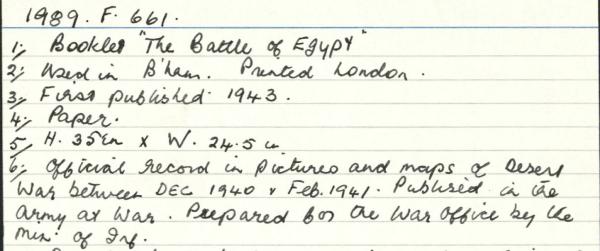 1989. F. 661.
1; Booklet "The Battle of Egypt"
2; Used in B'ham. Printed London.
3; First published 1943.
4; Paper.
5; H. 35cm x W. 24.5 cm
6; Official record in pictures and maps of Desert
War between DEC 1940 & Feb. 1941. Published in the
Army at War. Prepared for the War Office by the
Min. of Inf.